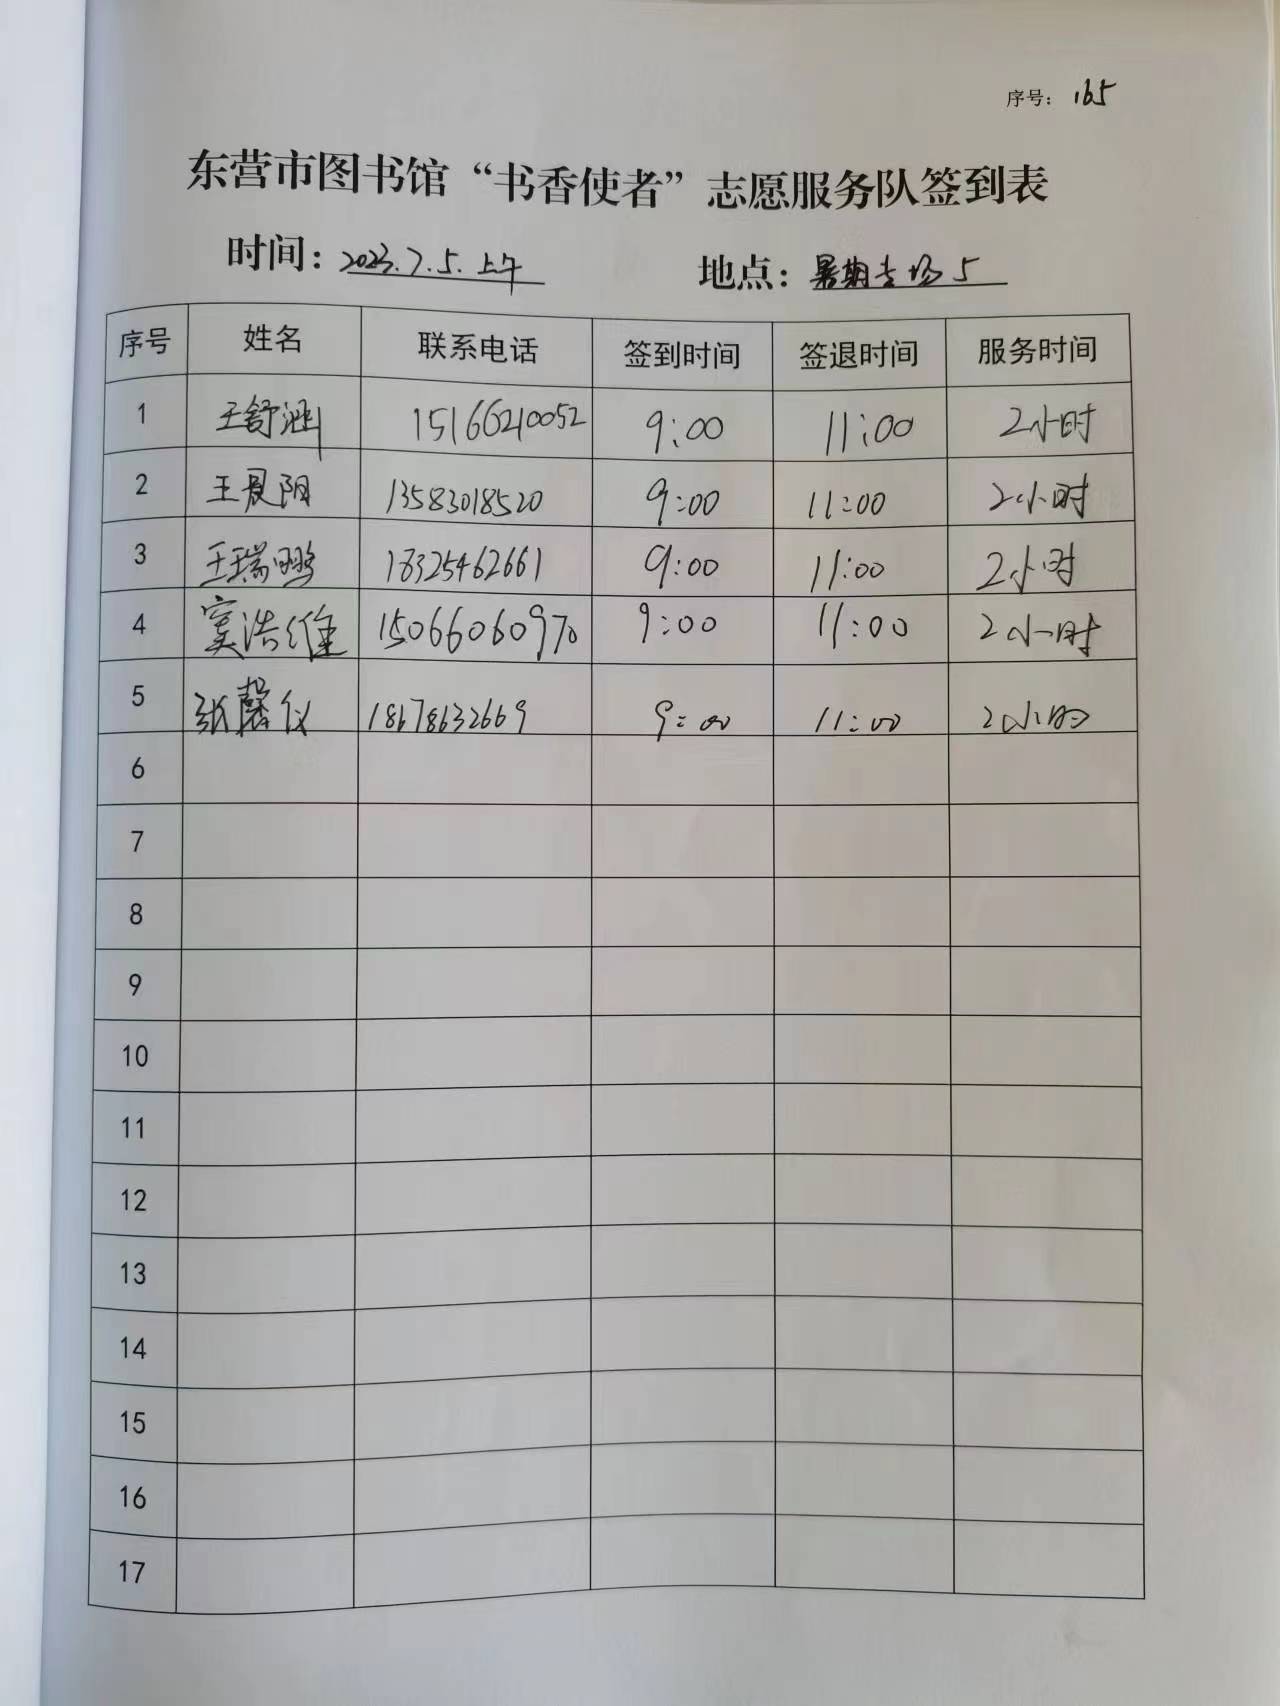 序号： 165
东营市图书馆“书香使者”志愿服务队签到表
时间：2023.7.5.上午 地点：暑期专场5
序号 姓名 联系电话 签到时间 签退时间 服务时间
1 王舒涵 15166210052 9:00 11:00 2小时
2 王晨阳 13583018520 9:00 11:00 2小时
3 王瑞鹏 18325462661 9:00 11:00 2小时
4 窦浩维 15066060970 9:00 11:00 2小时
5 张馨仪 18678632669 9:00 11:00 2小时
6
7
8
9
10
11
12
13
14
15
16
17